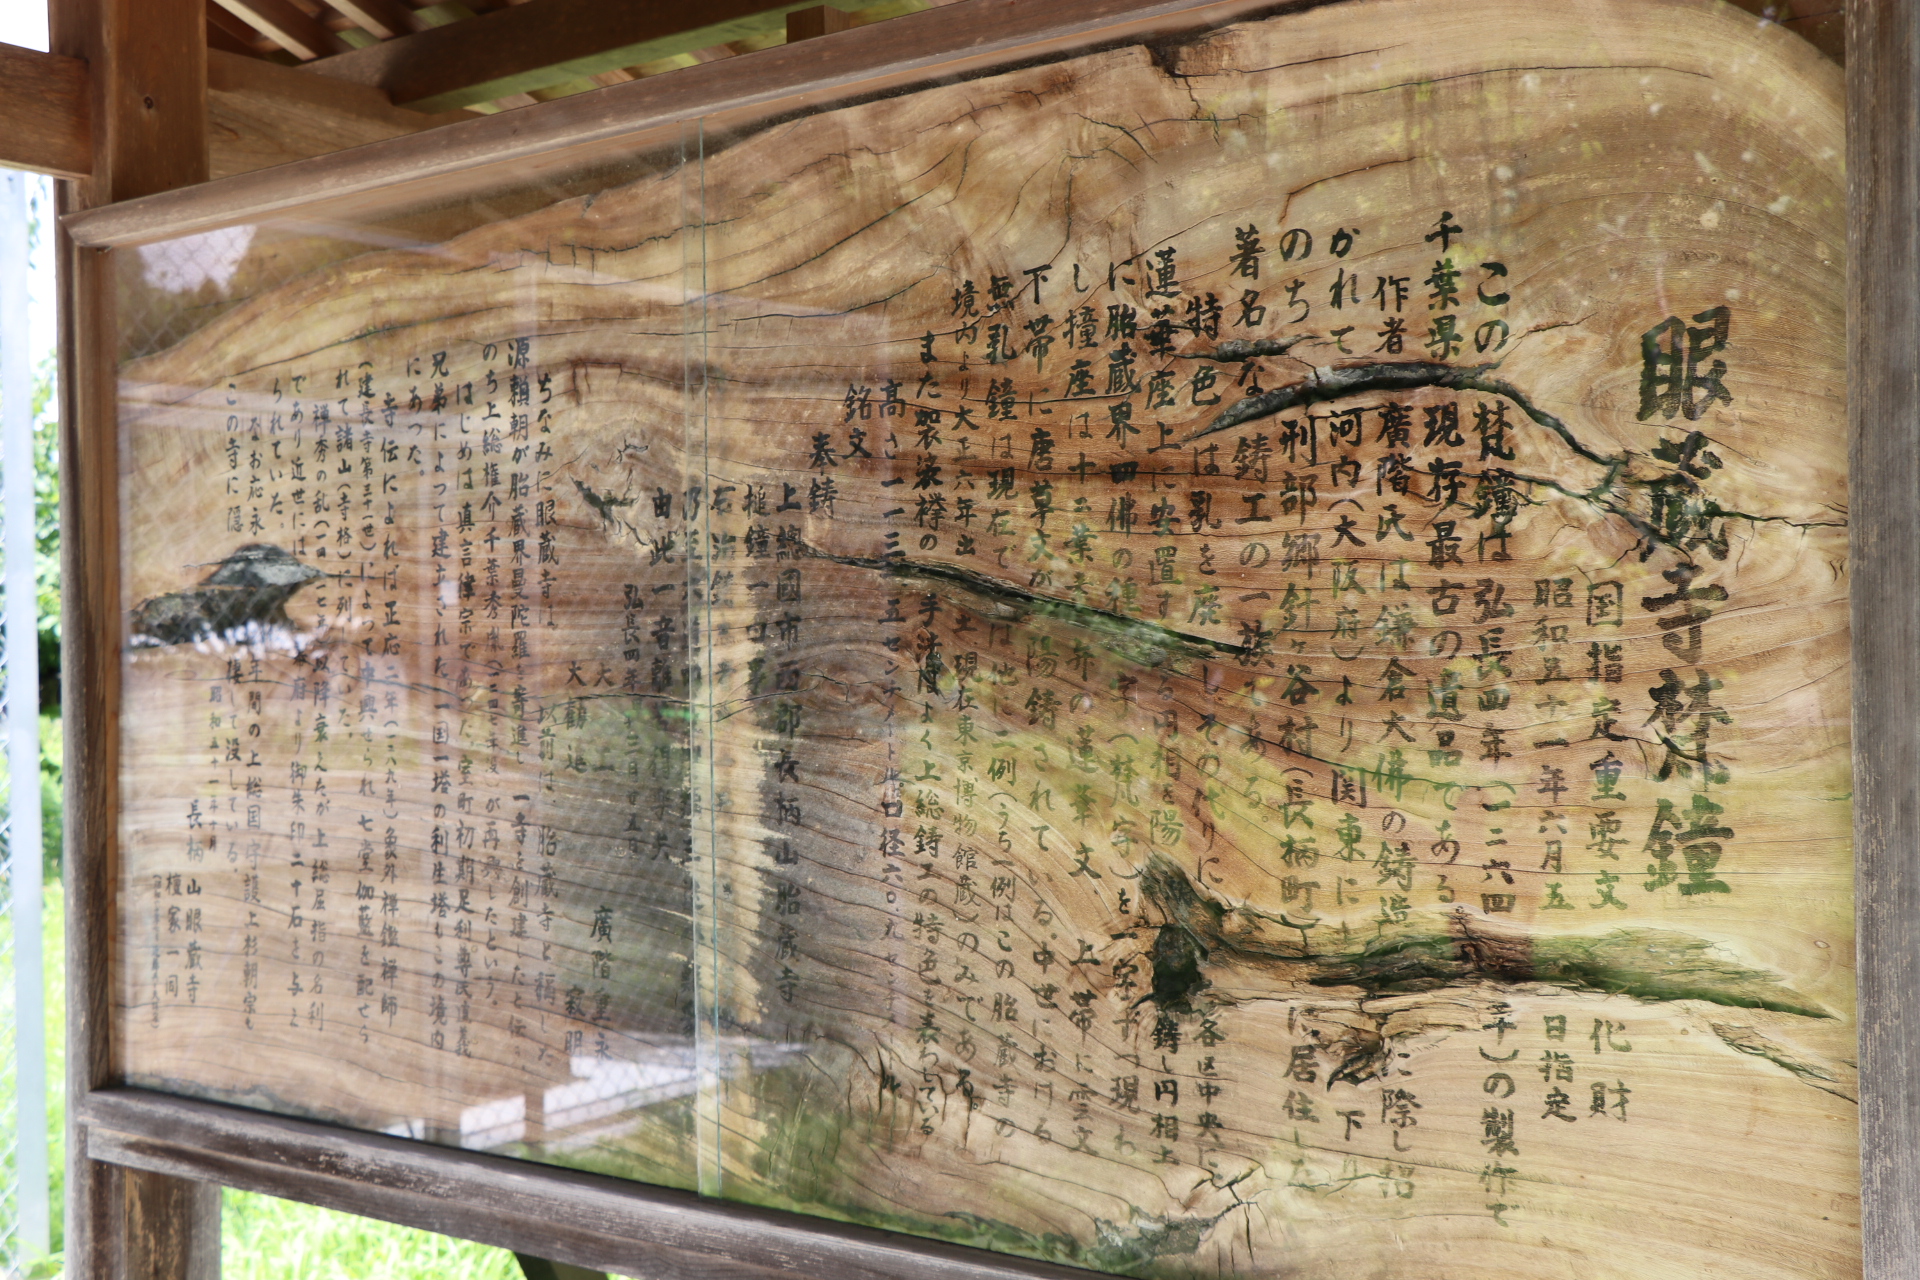 眼蔵寺梵鐘
国指定重要文化財
昭和五十一年六月五日指定
この梵鐘は弘長四年(一二六四年)の製作で
千葉県現存最古の遺品である
作者廣階氏は鎌倉大佛の鋳造に際し招
かれて河内(大阪府)より関東に下り
のち刑部郷針ヶ谷村(長柄町)に居住した
著名な鋳工の一族である。
特色は乳を廃してその代りに各区中央に
蓮華座上に安置する円相を陽鋳し円相上
に胎蔵界四佛の種字(梵字)を一字宛現わ
し撞座は十二葉の蓮華文 上帯に雲文
下帯に唐草文が陽鋳されている。中世における
無乳鐘は現在では他に二例(うち一例はこの胎蔵寺の
境内より大正六年出土現在東京博物館蔵)のみである。
また袈裟襷の手法はよく上総鋳工の特色を表わしている
高さ一一三・五センチメートル口径六〇・九センチメートル
銘文
奉鋳
上總國市西郡長柄山胎蔵寺
槌鐘一口事
由此一音
弘長四年
大勧進 寂明
廣階重永
ちなみに眼蔵寺は、以前は、胎蔵寺と稱した
源頼朝が胎蔵界曼陀羅を寄進し一寺を創建したと伝
のち上総権介千葉秀胤(一二四七年没)が再興したという。
はじめは真言律宗であった。室町初期足利尊氏直義
兄弟によって建立された一国一塔の利生塔もこの境内
にあった。
寺伝によれば正応二年(一二八九年)象外禅鑑禅師
(建長寺第三十一世)によって中興せられ七堂伽藍を配せら
れて諸山(寺格)に列していた。
禅秀の乱(一四一七年)以降衰えたが上総屈指の名利
であり近世には幕府より御朱印二十石を与え
られていた。
なお応永年間の上総国守護上杉朝宗も
この寺に隠棲して没している。
昭和五十一年十月
長柄山眼蔵寺
檀家一同